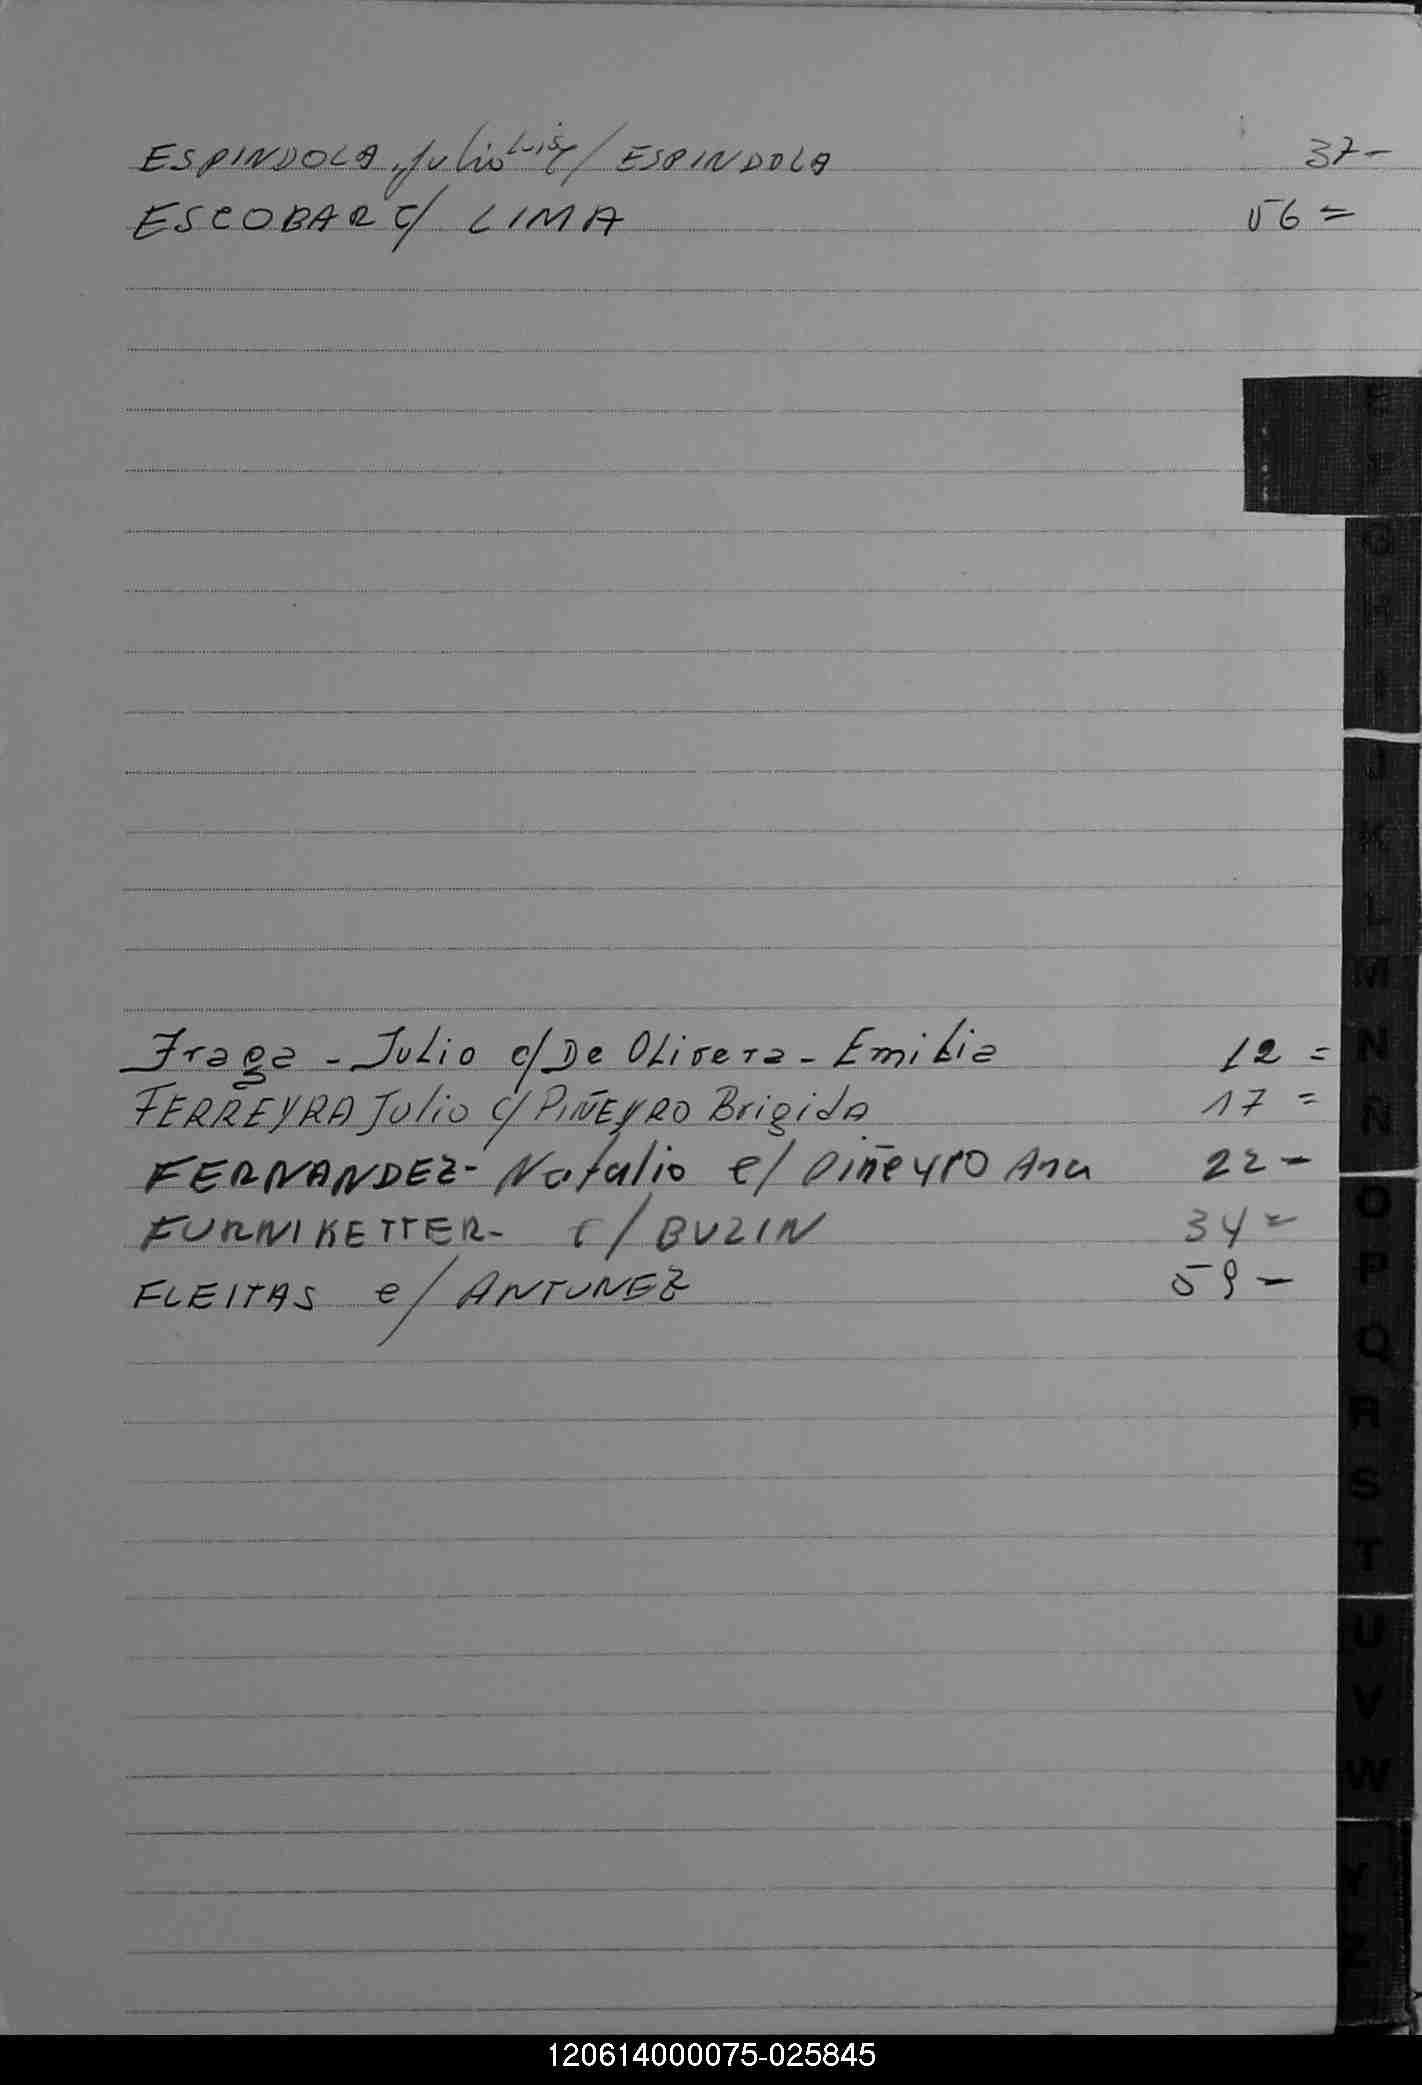 ESPINDOLA, Julio Luis c/ ESPINDOLA 37-
ESCOBAR c/ LIMA 56=
E
F
G
H
I
J
K
L
M
N
Fraga - Julio c/ De Olivera - Emilia 12=
Ñ
FERREYRA Julio c/ PIÑEYRO Brigida 17=
FERNANDEZ- Natalio c/ Piñeyro Ana 22-
O
FURNIKETTER- c/ BUZIN 34=
P
FLEITAS c/ ANTUNEZ 59-
Q
R
S
T
U
V
W
Y
Z
120614000075-025845